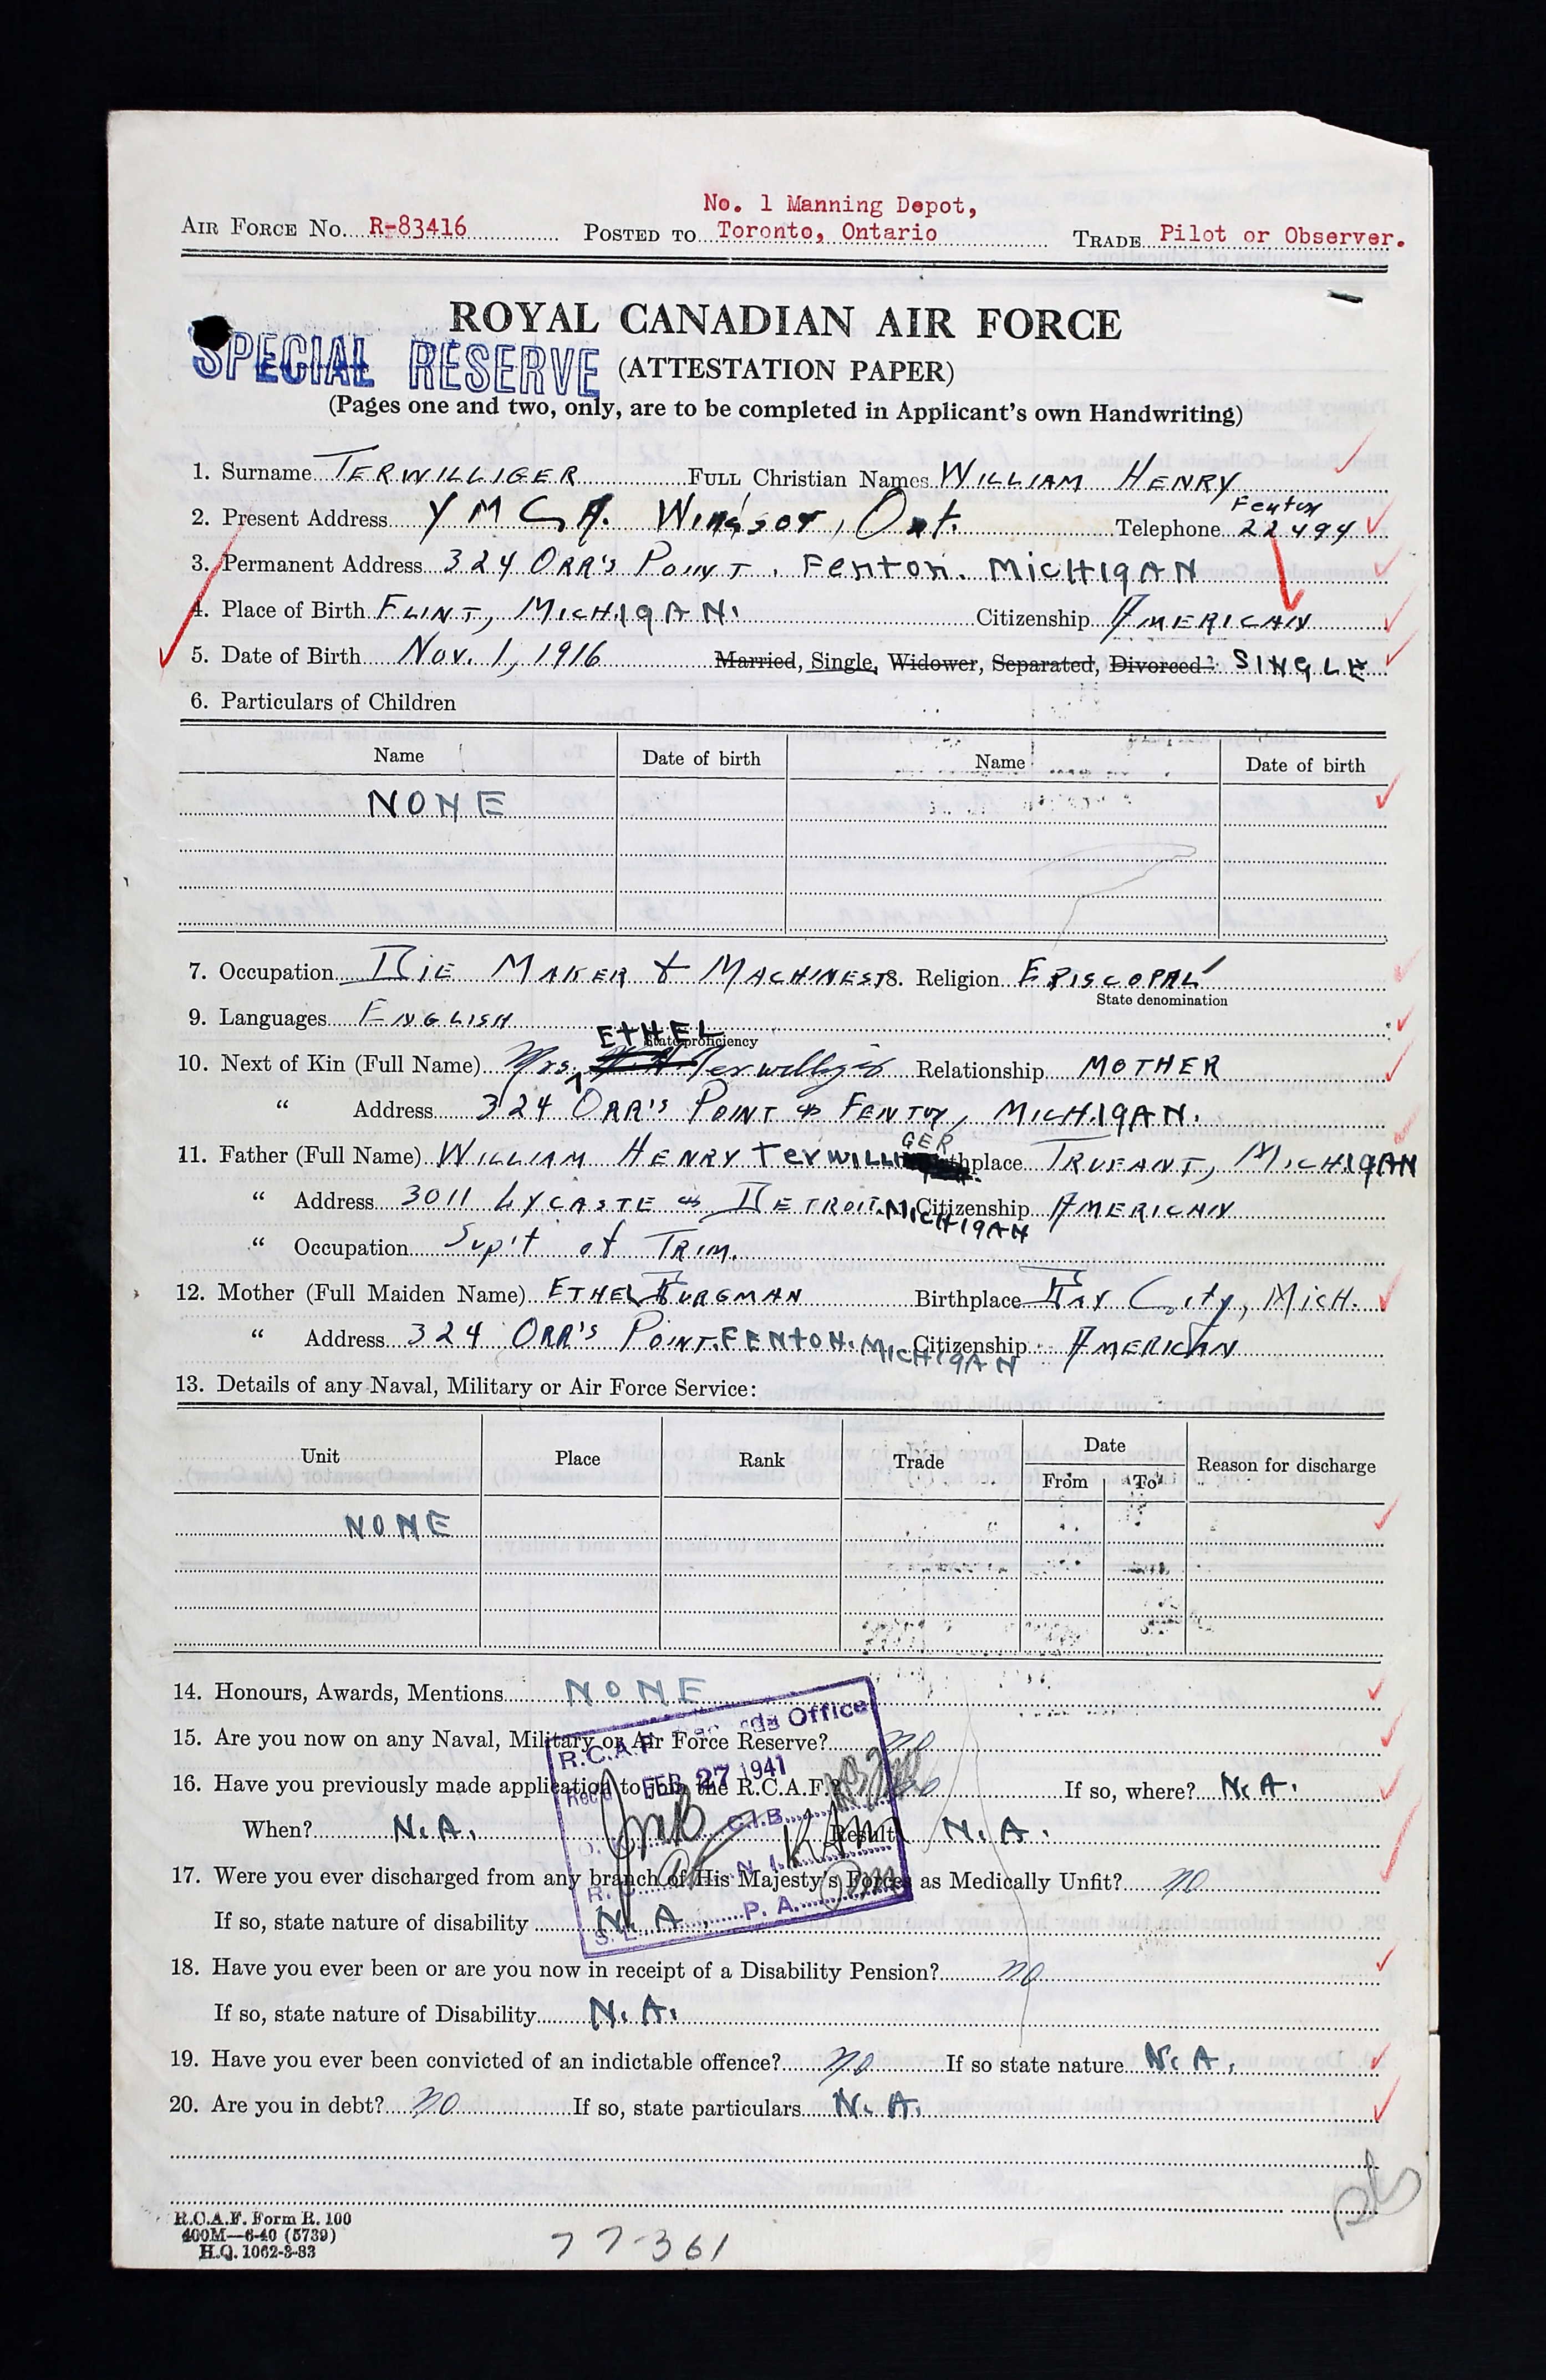 No. 1 Manning Depot,
AIR FORCE NO. R-83416 POSTED TO Toronto, Ontario TRADE Pilot or Observer.
ROYAL CANADIAN AIR FORCE
SPECIAL RESERVE (ATTESTATION PAPER)
(Pages one and two, only, are to be completed in Applicant's own Handwriting)
1. Surname TERWILLIGER FULL Christian Names WILLIAM HENRY
Fenton
2. Present Address YMCA. Windsor, Ont. Telephone 22494
3. Permanent Address 324 ORR'S POINT. FENTON. MICHIGAN
4. Place of Birth FLINT, MICHIGAN. Citizenship AMERICAN
5. Date of Birth Nov. 1, 1916 Married, Single, Widower, Separated, Divorced? SINGLE
6. Particulars of Children
Name Date of birth Name Date of birth
NONE
7. Occupation DIE MAKER & MACHINEST 8. Religion EPISCOPAL
State denomination
9. Languages ENGLISH
ETHEL State proficiency
10. Next of Kin (Full Name) Mrs. Terwilliger Relationship MOTHER
" Address 324 ORR'S POINT FENTON, MICHIGAN.
GER
11. Father (Full Name) WILLIAM HENRY TerWILLI Birthplace TRUFANT, MICHIGAN
" Address 3011 LYCASTE DETROIT. MICHIGAN Citizenship AMERICAN
" Occupation Sup't of TRIM.
12. Mother (Full Maiden Name) ETHEL BURGMAN Birthplace BAY City, MICH.
" Address 324 ORR'S POINT. FENTON. MICHIGAN Citizenship AMERICAN
13. Details of any Naval, Military or Air Force Service:
Unit Place Rank Trade Date Reason for discharge
From To
NONE
14. Honours, Awards, Mentions NONE
R.C.A.F. Records Office
15. Are you now on any Naval, Military or Air Force Reserve? no
Rec'd FEB 27 1941
16. Have you previously made application to join the R.C.A.F.? no If so, where? N.A.
C.I.B.
When? N.A. Result N.A.
N.I.
17. Were you ever discharged from any branch of His Majesty's Forces as Medically Unfit? no
R.
If so, state nature of disability N.A.
S. P.A.
18. Have you ever been or are you now in receipt of a Disability Pension? no
If so, state nature of Disability N.A.
19. Have you ever been convicted of an indictable offence? no If so state nature N.A.
20. Are you in debt? no If so, state particulars N.A.
R.C.A.F. Form R. 100
400M—6-40 (5739)
H.Q. 1062-3-83
77-361